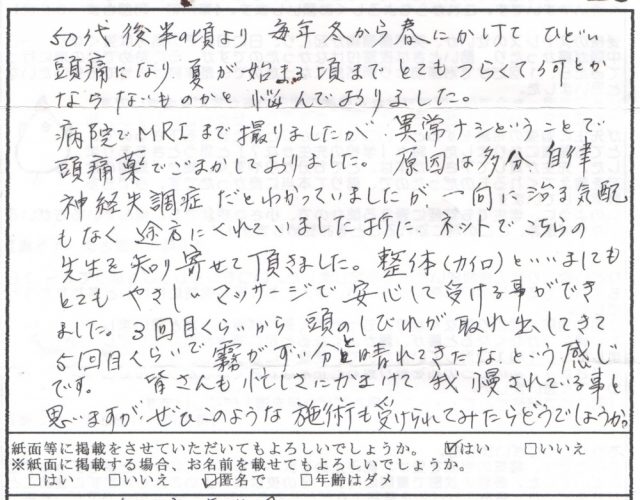 50代後半の頃より 毎年冬から春にかけて ひどい
頭痛になり、夏が始まる頃まで とてもつらくて何とか
ならないものかと 悩んでおりました。
病院でMRIまで撮りましたが、異常ナシということで
頭痛薬でごまかしておりました。 原因は多分 自律
神経失調症 だとわかっていましたが、一向に治る気配
もなく 途方にくれていました折に、ネットでこちらの
先生を知り寄せて頂きました。整体(カイロ)といいましても
とても やさしいマッサージで 安心して受ける事ができ
ました。3回目くらいから 頭のしびれが取れ出してきて
5回目くらいで霧がずい分と晴れてきたな、という感じ
です。 皆さんも忙しさにかまけて 我慢されている事と
思いますが、ぜひこのような施術も受けられてみたらどうでしょうか。
紙面等に掲載をさせていただいてもよろしいでしょうか。 ☑はい □いいえ
※紙面に掲載する場合、お名前を載せてもよろしいでしょうか。
□はい □いいえ ☑匿名で □年齢はダメ